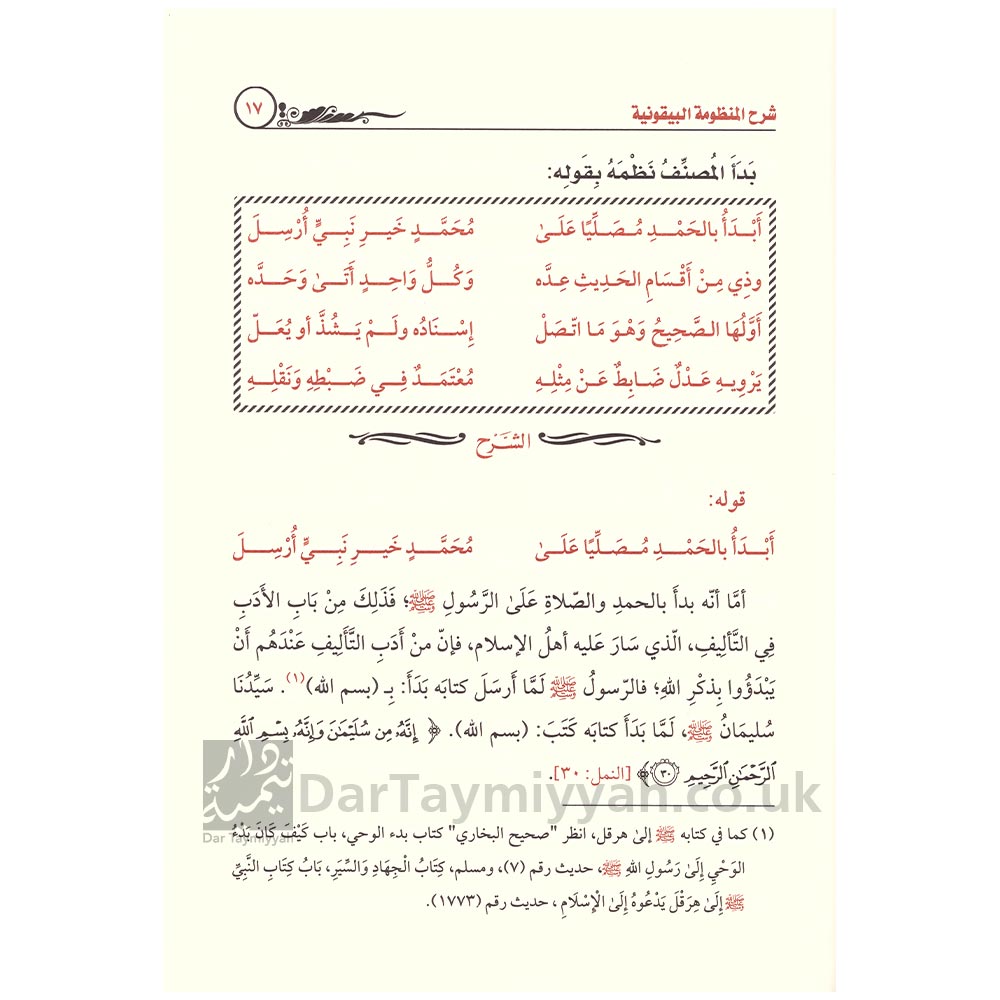 شرح المنظومة البيقونية ١٧
بَدَأَ المُصنِّفُ نَظْمَهُ بِقَولِه:
أَبْـدَأُ بالحَمْـدِ مُـصَلِّيًا عَلَىٰ مُحَمَّـدٍ خَيـرِ نَبِـيٍّ أُرْسِـلَ
وذِي مِـنْ أَقْسَامِ الحَديثِ عِدَّه وَكُـلُّ وَاحِـدٍ أَتَىٰ وَحَـدَّه
أَوَّلُهَا الصَّحِيحُ وَهْوَ مَا اتّصَلْ إسْـنَادُه ولَـمْ يَـشُذَّ أو يُعَـلّ
يَرْوِيـهِ عَـدْلٌ ضَابِطٌ عَـنْ مِثْلِـهِ مُعْتَمَـدٌ فِـي ضَـبْطِهِ وَنَقْلِـهِ
الشَّرْح
قوله:
أَبْـدَأُ بالحَمْـدِ مُـصَلِّيًا عَلَـىٰ مُحَمَّـدٍ خَيـرِ نَبِـيٍّ أُرْسِـلَ
أمَّا أنّه بدأَ بالحمدِ والصّلاةِ عَلَىٰ الرَّسُولِ ﷺ؛ فَذَلِكَ مِنْ بَابِ الأَدَبِ
فِي التَّأليفِ، الّذي سَارَ عَليه أهلُ الإسلام، فإنّ منْ أدَبِ التَّأليفِ عَنْدَهُم أَنْ
يَبْدَؤُوا بِذكْرِ اللهِ؛ فالرّسولُ ﷺ لَمَّا أَرسَلَ كتابَه بَدَأَ: بِـ (بسم الله)(١). سَيِّدُنَا
سُليمَانُ ﷺ، لَمَّا بَدَأَ كتابَه كَتَبَ: (بسم الله). ﴿ إِنَّهُۥ مِن سُلَيْمَٰنَ وَإِنَّهُۥ بِسْمِ ٱللَّهِ
ٱلرَّحْمَٰنِ ٱلرَّحِيمِ ٣٠ ﴾ [النمل: ٣٠].
دار تيمية
Dar Taymiyyah
DarTaymiyyah.co.uk
(١) كما في كتابه ﷺ إلىٰ هرقل، انظر "صحيح البخاري" كتاب بدء الوحي، باب كَيْفَ كَانَ بَدْءُ
الوَحْيِ إِلَىٰ رَسُولِ اللهِ ﷺ، حديث رقم (٧)، ومسلم، كِتَابُ الْجِهَادِ وَالسِّيَرِ، بَابُ كِتَابِ النَّبِيِّ
ﷺ إِلَىٰ هِرَقْلَ يَدْعُوهُ إِلَىٰ الْإِسْلَامِ ، حديث رقم (١٧٧٣).